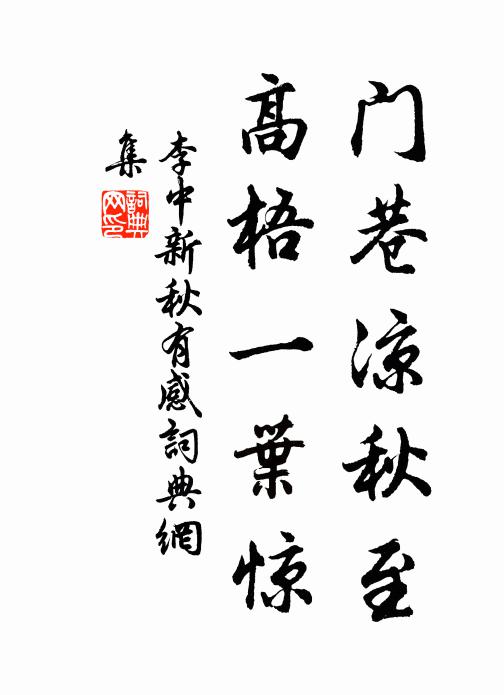 门巷凉秋至
高梧一葉惊
李中新秋有感詞典網
集
詞典
网印